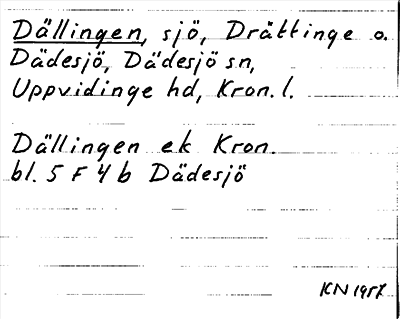 Dällingen, sjö, Drättinge o.
Dädesjö, Dädesjö sn,
Uppvidinge hd, Kron. l.
Dällingen ek Kron.
bl. 5 F 4 b Dädesjö
KN 1957